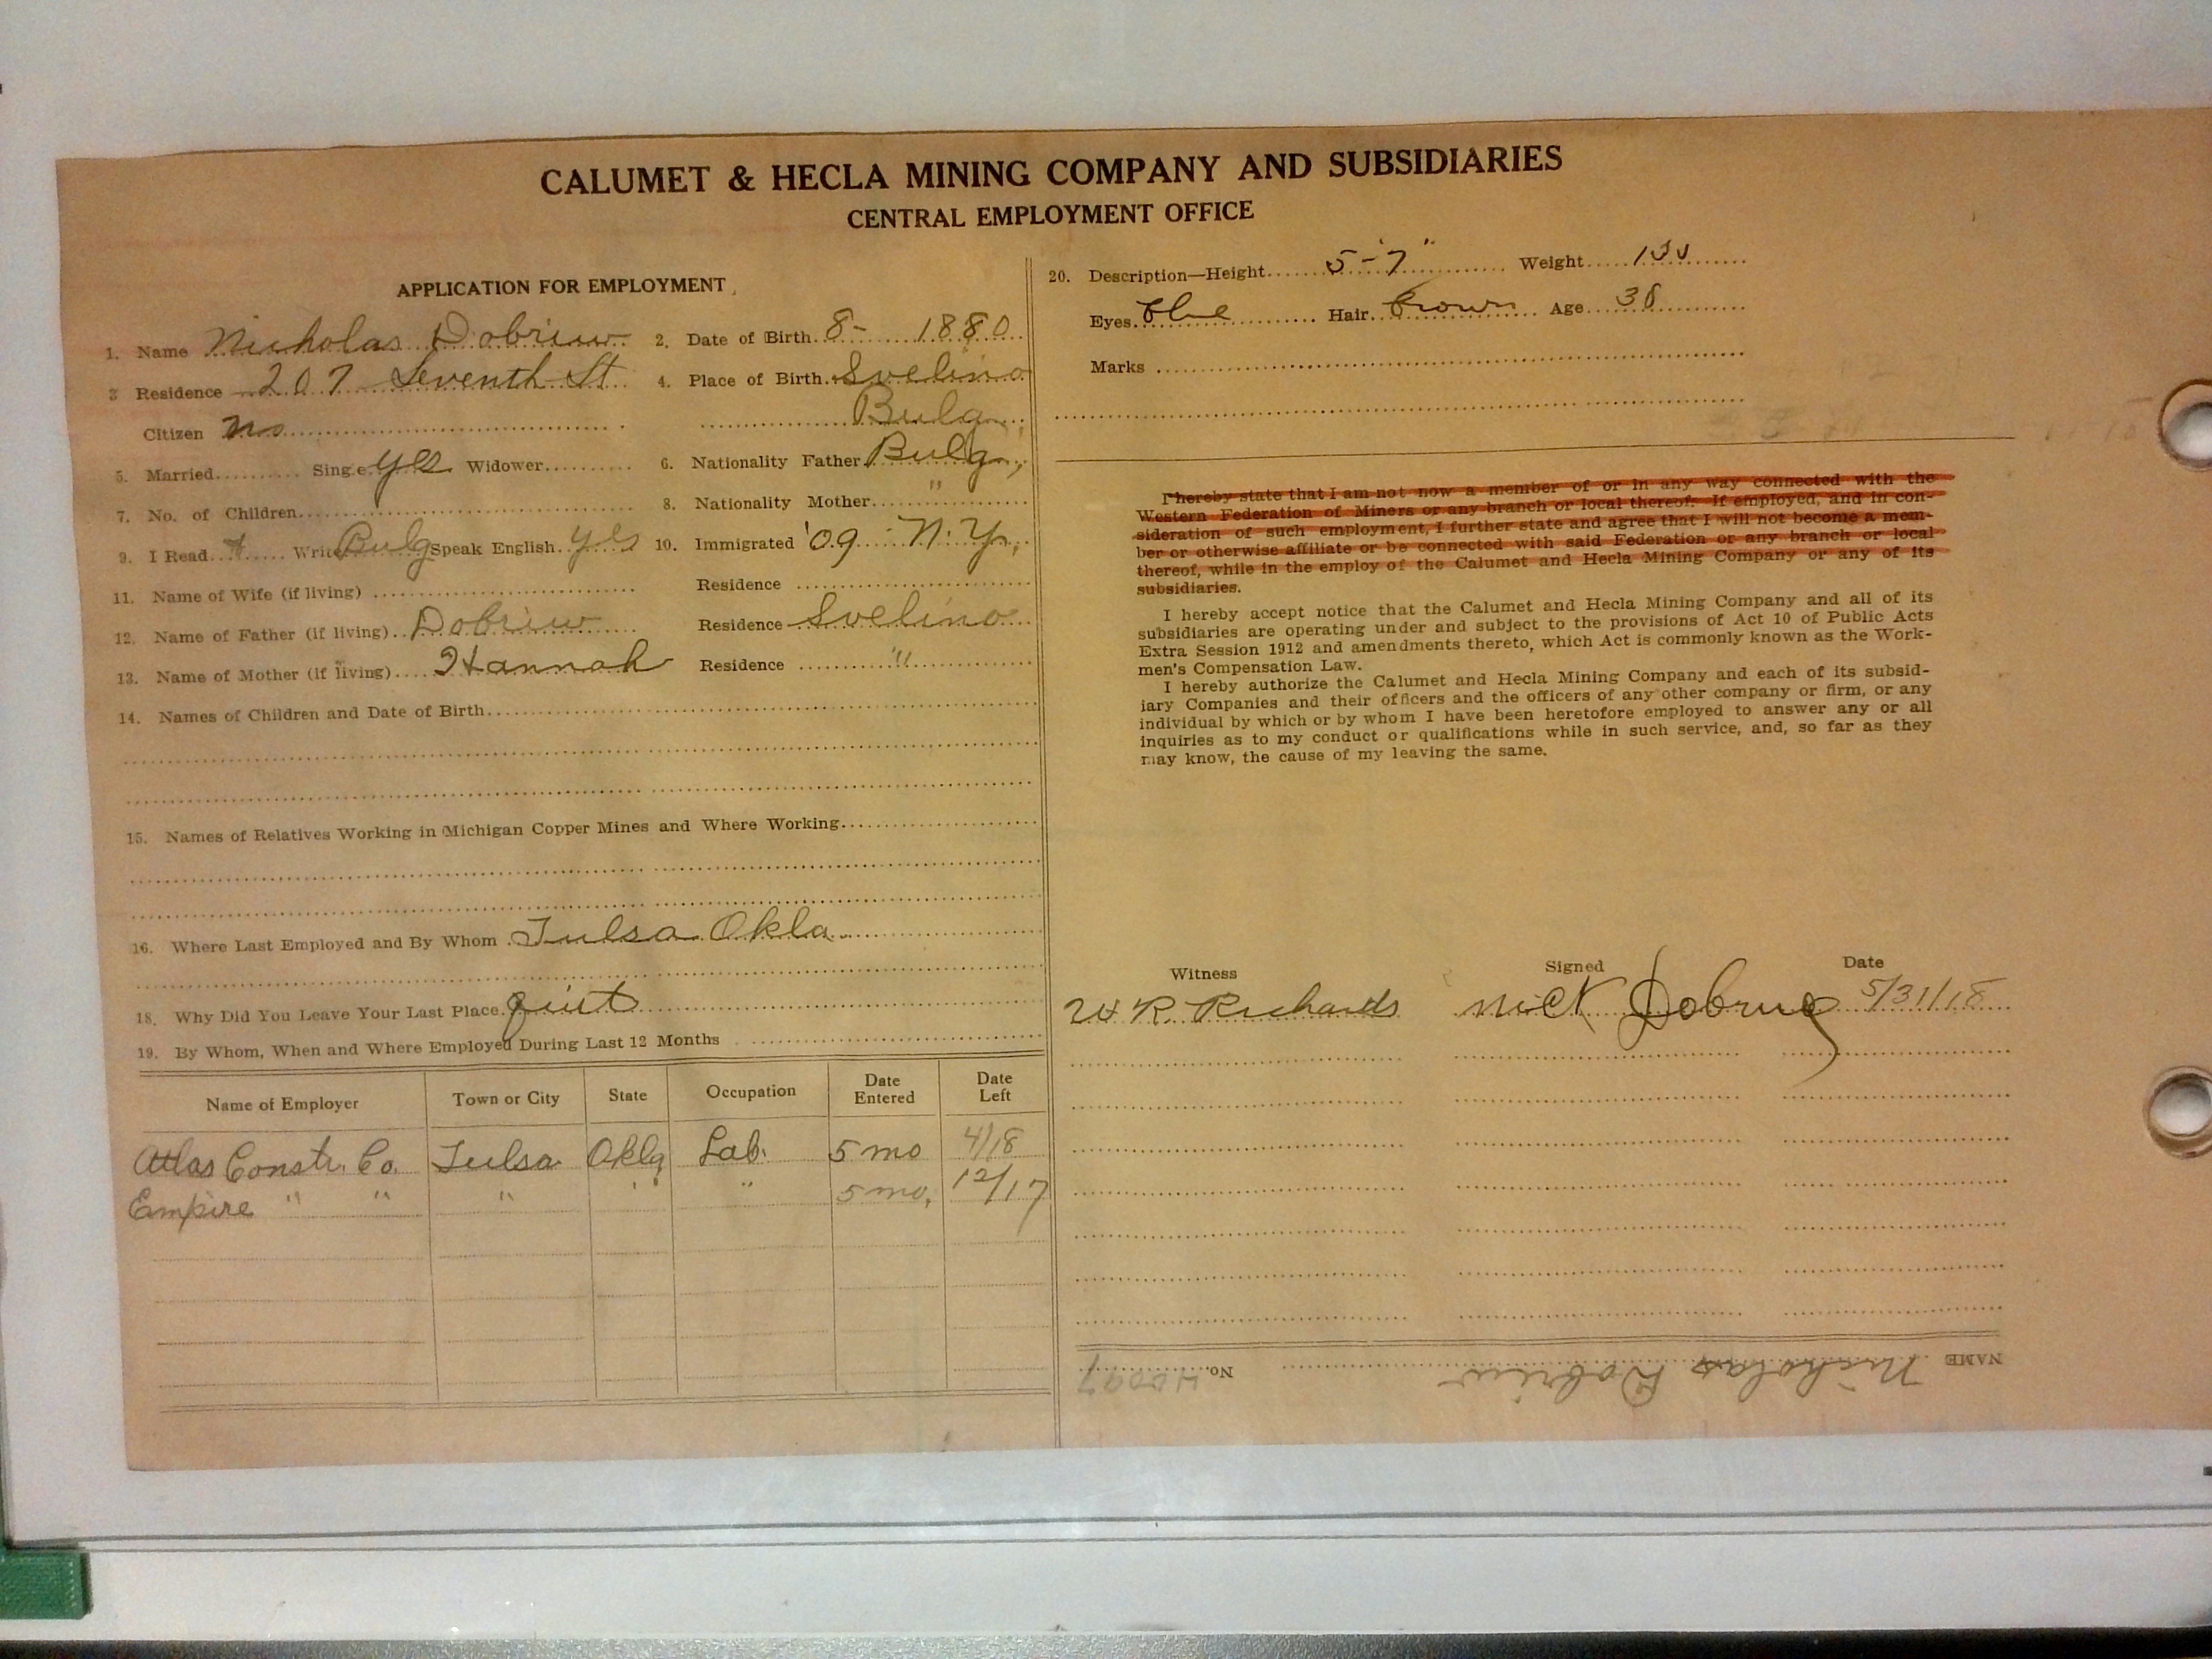 CALUMET & HECLA MINING COMPANY AND SUBSIDIARIES
CENTRAL EMPLOYMENT OFFICE
APPLICATION FOR EMPLOYMENT
1. Name Nicholas Dobriw 2. Date of Birth 8- 1880
3 Residence 207 Seventh St 4. Place of Birth Svelino
Citizen no Bulg
5. Married Single yes Widower 6. Nationality Father Bulg,
7. No. of Children 8. Nationality Mother "
9. I Read & Write Bulg Speak English yes 10. Immigrated '09 N.Y.
11. Name of Wife (if living) Residence
12. Name of Father (if living) Dobriw Residence Svelino
13. Name of Mother (if living) Hannah Residence "
14. Names of Children and Date of Birth
15. Names of Relatives Working in Michigan Copper Mines and Where Working
16. Where Last Employed and By Whom Tulsa Okla
18. Why Did You Leave Your Last Place quit
19. By Whom, When and Where Employed During Last 12 Months
Name of Employer Town or City State Occupation Date Entered Date Left
Atlas Constr. Co. Tulsa Okla Lab. 5 mo 4/18
Empire " " " " " 5 mo. 12/17
20. Description—Height 5'-7" Weight 130
Eyes blue Hair brown Age 38
Marks
I hereby state that I am not now a member of or in any way connected with the
Western Federation of Miners or any branch or local thereof. If employed, and in con-
sideration of such employment, I further state and agree that I will not become a mem-
ber or otherwise affiliate or be connected with said Federation or any branch or local
thereof, while in the employ of the Calumet and Hecla Mining Company or any of its
subsidiaries.
I hereby accept notice that the Calumet and Hecla Mining Company and all of its
subsidiaries are operating under and subject to the provisions of Act 10 of Public Acts
Extra Session 1912 and amendments thereto, which Act is commonly known as the Work-
men's Compensation Law.
I hereby authorize the Calumet and Hecla Mining Company and each of its subsid-
iary Companies and their officers and the officers of any other company or firm, or any
individual by which or by whom I have been heretofore employed to answer any or all
inquiries as to my conduct or qualifications while in such service, and, so far as they
may know, the cause of my leaving the same.
Witness Signed Date
W R Richards Nick Dobrue 5/31/18
NAME Nicholas Dobriw No.